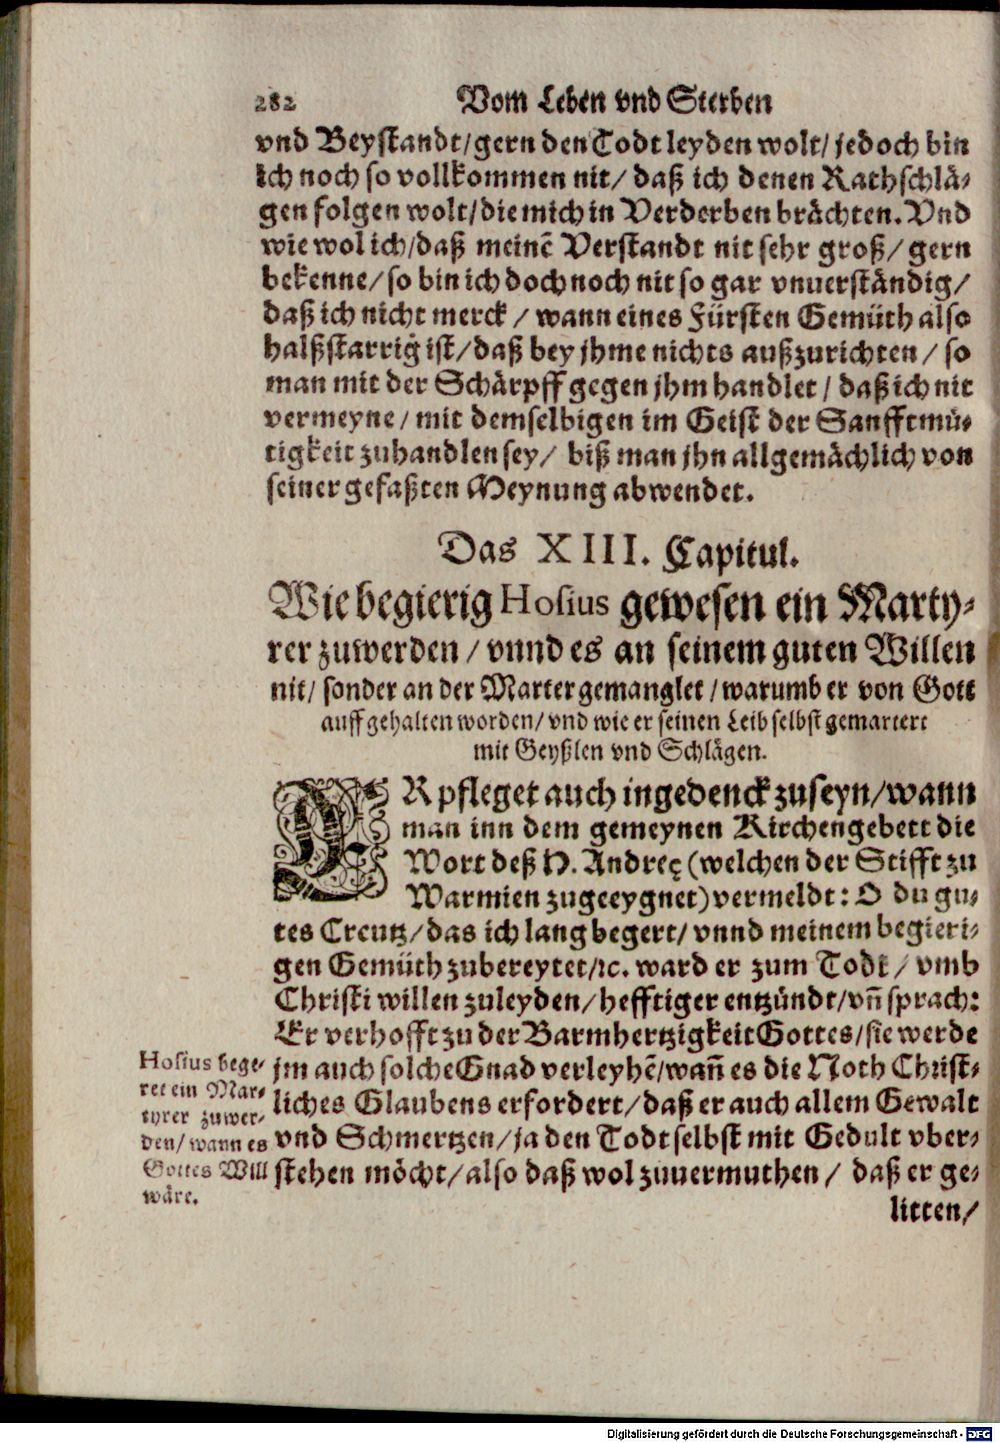 282 Vom Leben vnd Sterben
vnd Beystandt/gern den Todt leyden wolt/ jedoch bin
ich noch so vollkommen nit/ daß ich denen Rathschlä-
gen folgen wolt/die mich in Verderben brächten. Vnd
wie wol ich/daß meinē Verstandt nit sehr groß/ gern
bekenne/so bin ich doch noch nit so gar vnuerständig/
daß ich nicht merck / wann eines Fürsten Gemüth also
halßstarrig ist/daß bey jhme nichts außzurichten / so
man mit der Schärpff gegen jhm handlet / daß ich nit
vermeyne / mit demselbigen im Geist der Sanfftmü-
tigkeit zuhandlen sey/ biß man jhn allgemächlich von
seiner gefaßten Meynung abwendet.
Das XIII. Capitul.
Wie begierig Hosius gewesen ein Marty-
rer zuwerden / vnnd es an seinem guten Willen
nit/ sonder an der Marter gemanglet / warumb er von Gott
auffgehalten worden/ vnd wie er seinen Leib selbst gemartert
mit Geyßlen vnd Schlägen.
ER pfleget auch ingedenck zuseyn/wann
man inn dem gemeynen Kirchengebett die
Wort deß H. Andreę (welchen der Stifft zu
Warmien zugeeygnet) vermeldt: O du gu-
tes Creutz/das ich lang begert/ vnnd meinem begieri-
gen Gemüth zubereytet/ꝛc. ward er zum Todt / vmb
Christi willen zuleyden/hefftiger entzündt/vn̄ sprach:
Er verhofft zu der Barmhertzigkeit Gottes/sie werde
jm auch solche Gnad verleyhē/wan̄ es die Noth Christ-
liches Glaubens erfordert/daß er auch allem Gewalt
vnd Schmertzen/ja den Todt selbst mit Gedult vber-
stehen möcht/also daß wol zuuermuthen / daß er ge-
litten/
Hosius bege-
ret ein Mar-
tyrer zuwer-
den/wann es
Gottes Will
wäre.
Digitalisierung gefördert durch die Deutsche Forschungsgemeinschaft - DFG